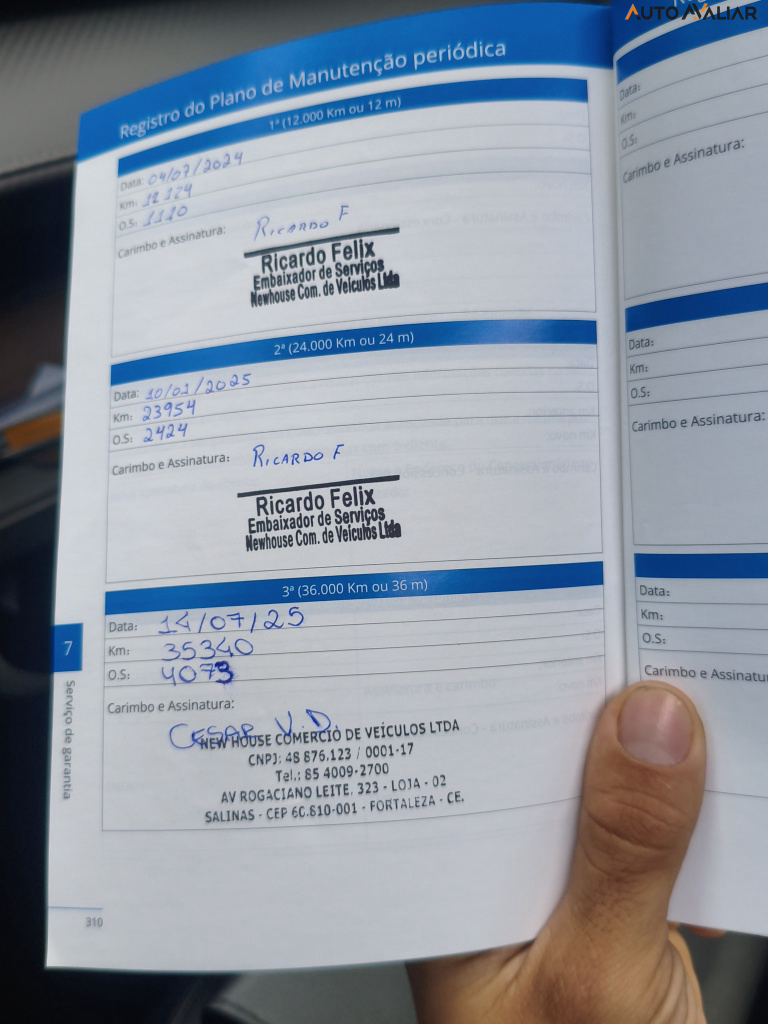 AUTOAVALIAR
Registro do Plano de Manutenção periódica
1ª (12.000 Km ou 12 m)
Data: 04/07/2024
Km: 12124
O.S: 1110
Carimbo e Assinatura:
RICARDO F
Ricardo Felix
Embaixador de Serviços
Newhouse Com. de Veículos Ltda
2ª (24.000 Km ou 24 m)
Data: 10/01/2025
Km: 23954
O.S: 2424
Carimbo e Assinatura:
RICARDO F
Ricardo Felix
Embaixador de Serviços
Newhouse Com. de Veículos Ltda
3ª (36.000 Km ou 36 m)
Data: 14/07/25
Km: 35340
O.S: 4073
Carimbo e Assinatura:
CESAR V.D.
NEW HOUSE COMERCIO DE VEÍCULOS LTDA
CNPJ: 48 876.123 / 0001-17
Tel.: 85 4009-2700
AV ROGACIANO LEITE. 323 - LOJA - 02
SALINAS - CEP 60.810-001 - FORTALEZA - CE.
7
Serviço de garantia
310
Data:
Km:
O.S:
Carimbo e Assinatura:
Data:
Km:
O.S:
Carimbo e Assinatura:
Data:
Km:
O.S:
Carimbo e Assinatu